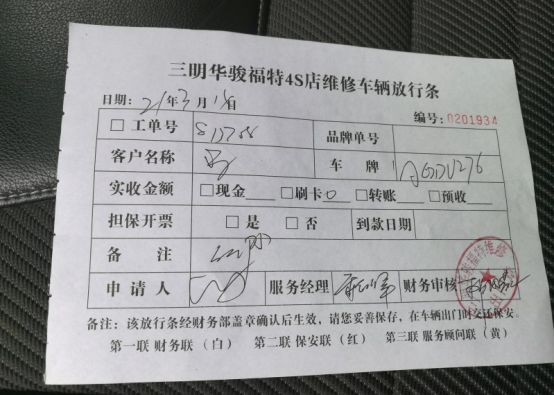 三明华骏福特4S店维修车辆放行条
日期：21年3月18日 编号：0201934
□ 工单号 品牌单号
客户名称 车牌
实收金额 □现金 □刷卡0 □转账 □预收
担保开票 □ 是 □ 否 到款日期
备注
申请人 服务经理 财务审核
备注：该放行条经财务部盖章确认后生效，请您妥善保存，在车辆出门时交还保安。
第一联 财务联（白） 第二联 保安联（红） 第三联 服务顾问联（黄）